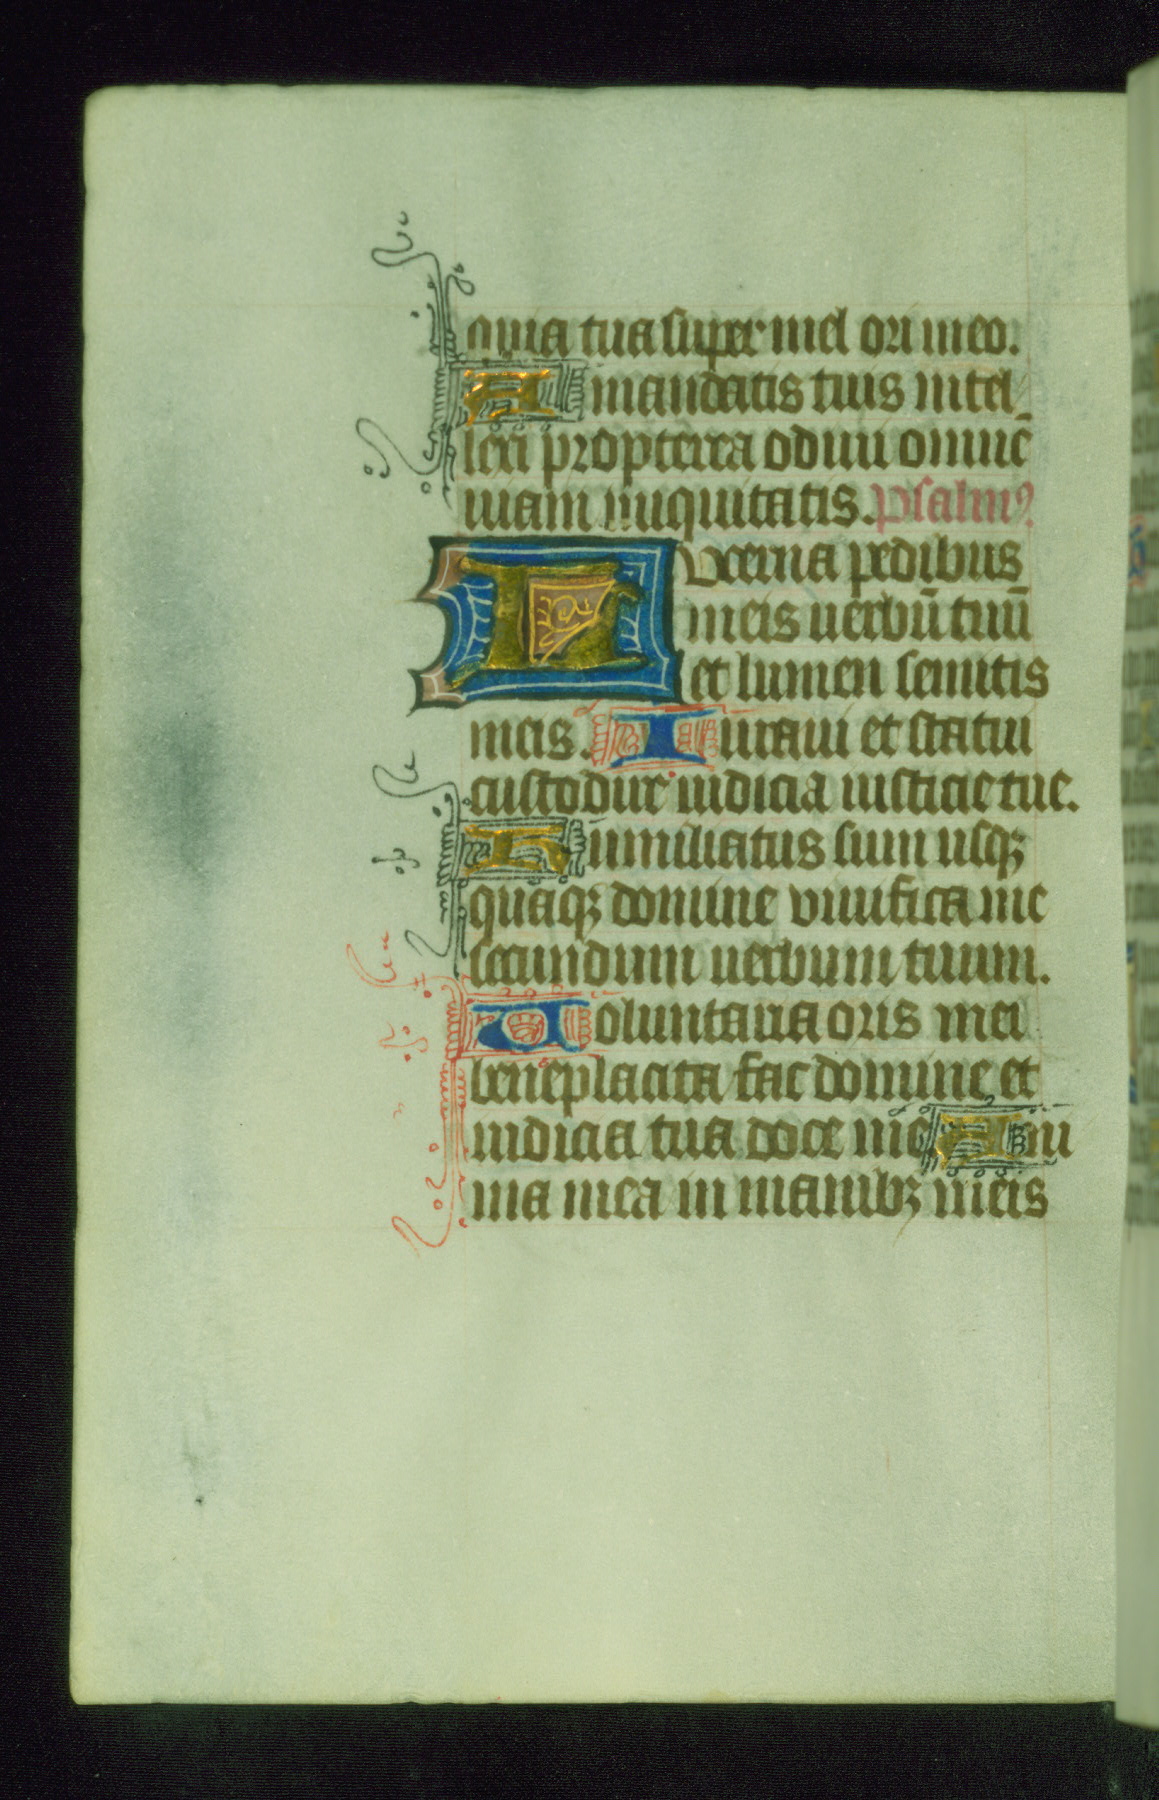 quia tua super mel ori meo.
A mandatis tuis intel
lexi propterea odiui omnē
uiam iniquitatis. psalmꝰ.
Lucerna pedibus
meis uerbū tuū
et lumen semitis
meis. Iuraui et statui
custodire iudicia iusticie tue.
Humiliatus sum usqꝫ
quaqꝫ domine viuifica me
secundum uerbum tuum.
Uoluntaria oris mei
beneplacita fac domine et
iudicia tua doce me Ani
ma mea in manibꝫ meis